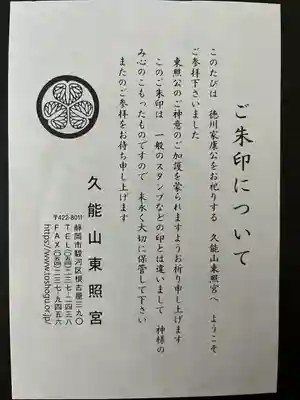 ご朱印について
このたびは　徳川家康公をお祀りする　久能山東照宮へ　ようこそ
ご参拝下さいました
東照公のご神意のご加護を蒙られますようお祈り申し上げます
このご朱印は　一般のスタンプなどの印とは違いまして　神様の
み心のこもったものですので　末永く大切に保管して下さい
またのご参拝をお待ち申し上げます
久能山東照宮
〒422-8011
静岡市駿河区根古屋三九〇
ＴＥＬ〇五四―二三七―二四三八
ＦＡＸ〇五四―二三七―九四五六
https://www.toshogu.or.jp/